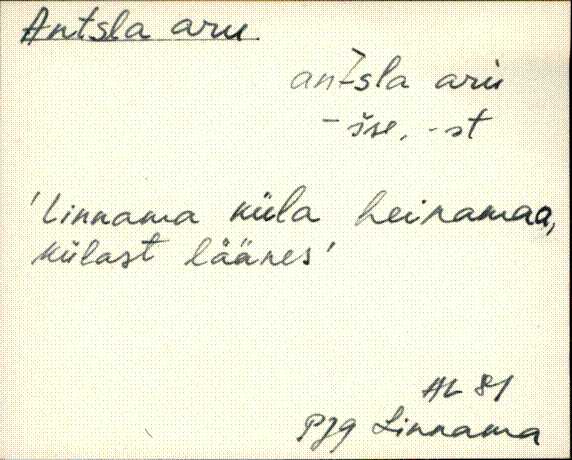 Antsla aru
antsla aru
-šse, -st
'Linnama küla heinamaa,
külast läänes'
Pjg Linnama